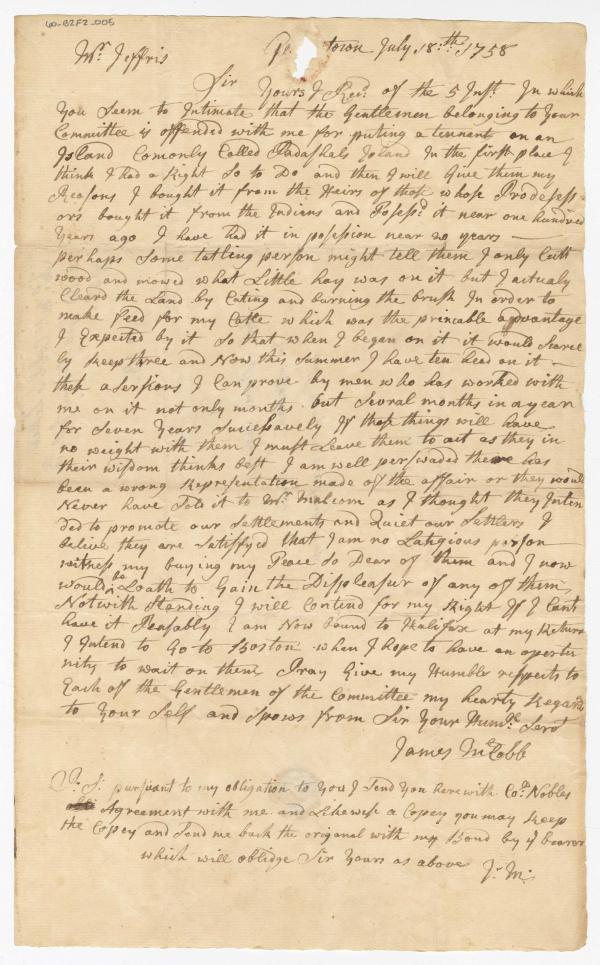 60-B2F2-005
Mr. Jeffris town July 18:th: 1758
Sir Yours I Recd. of the 5 Inst. In which
You Seem to Intimate that the Gentlemen belonging to Your
Committee is offended with me for puting a tennent on an
Island Comonly Called Padashals Island In the first place I
think I had a Right So to Do and then I will Give them my
Reasons I bought it from the Heirs of those whose Prodesess-
ors bought it from the Indiens and Posesd. it near one hundred
Years ago I have had it in posesion near 20 years —
perhaps Some tatling person might tell them I only Cutt
wood and mowed what Little hay was on it but I actualy
Cleard the Land by Cuting and burning the brush In order to
make feed for my Catle which was the princable advantage
I Expected by it So that when I began on it it would Scarce
ly keep three and Now this Summer I have ten head on it —
these asersions I Can prove by men who has worked with
me on it not only months but Sevral months in a year
for Seven Years Sucessavely If those things will have
no weight with them I must Leave them to act as they in
their wisdom thinks best I am well perswaded there has
been a wrong Representation made of the affair or they would
Never have Sold it to Mr. Malcom as I thought they Inten
ded to promote our Settlements and Quiet our Settlers I
belive they are Satisfyed that I am no Latigious person
witness my buying my Peace So Dear of them and I now
would be Loath to Gain the Displeasur of any of them
Notwith Standing I will Contend for my Right If I Cant
have it Peasably I am Now bound to Halifax at my Return
I Intend to Go to Boston when I hope to have an oporter
nity to wait on them Pray Give my Humble respects to
Each of the Gentlemen of the Committee my hearty Regards
to Your Self and Spows from Sir Your Humle. Servt
James McCobb
P: S: pursuant to my obligation to You I Send You herewith Nobles
Agreement with me and Likewise a Copey you may keep
the Copey and Send me back the original with my Bond by ye bearer
which will oblidge Sir Yours as above J: M: